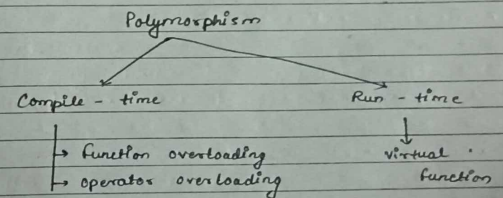 Polymorphism
Compile - time
Run - time
function overloading
operator overloading
virtual
function